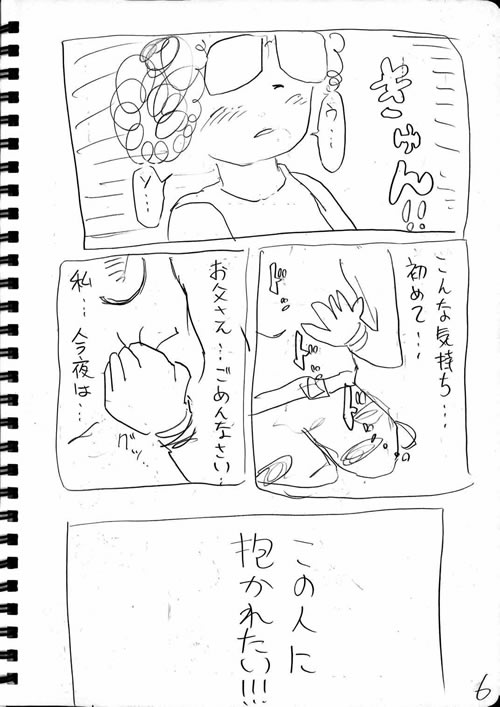 きゅん!!
ウ…
ソ…
こんな気持ち…
初めて…
ド
ド
ド
お父さん…ごめんなさい…
私…今夜は…
グッ…
この人に
抱かれたい!!!
6